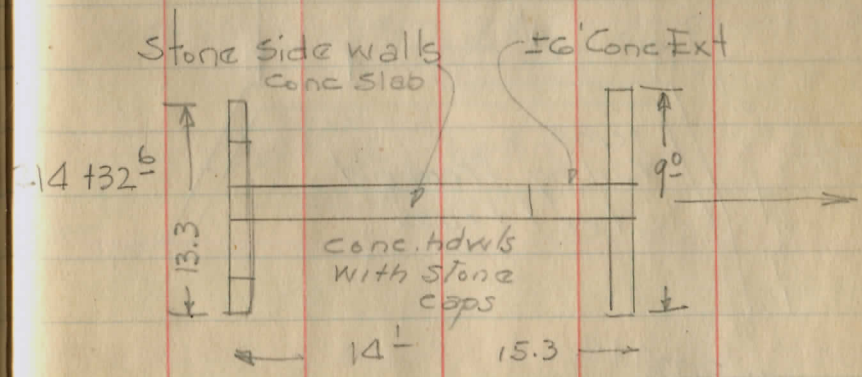 Stone side walls
conc slab
±6' Conc Ext
14 +32 6
9 0
13.3
conc. hdwls
with stone
caps
14 1
15.3